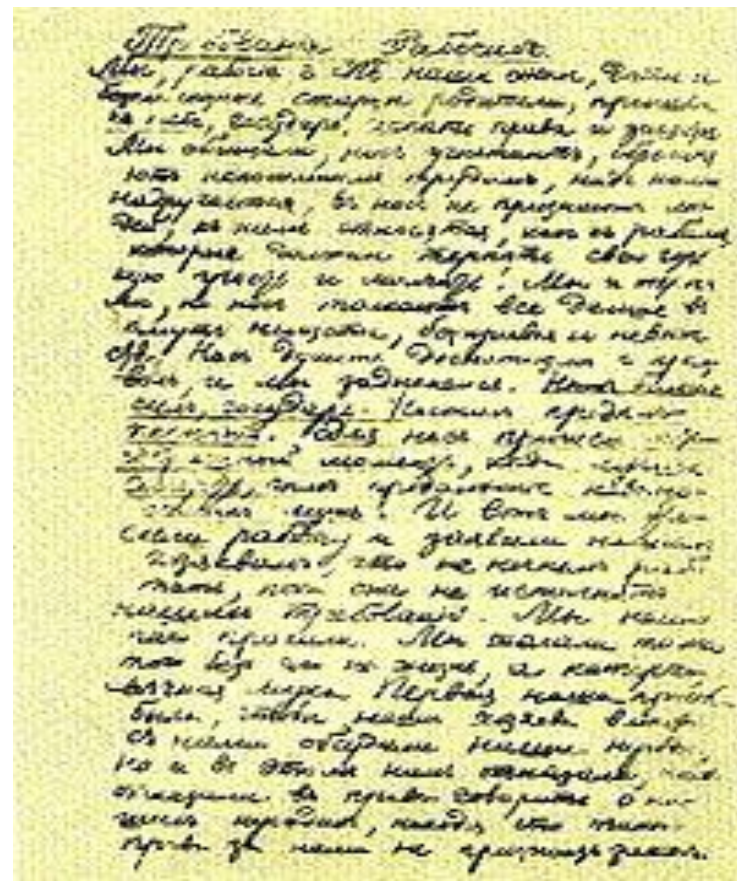 Требованія Рабочихъ.
Мы, рабочіе наши жены, дѣти и
старцы родители, пришли
къ тебѣ, государь, искать правды и защиты
Мы обнищали, насъ угнетаютъ, обремен
яютъ непосильнымъ трудомъ, надъ нами
надругаются, въ насъ не признаютъ лю-
дей, къ намъ относятся, какъ къ рабамъ,
которые должны терпѣть свою горь
кую участь и молчать. Мы и терпѣ
ли, но насъ толкаютъ все дальше въ
омутъ нищеты, безправія и невѣже
ства. Насъ душитъ деспотизмъ и произ
волъ, и мы задыхаемся. Нѣтъ больше
силъ, государь. Насталъ предѣлъ
терпѣнію. Для насъ пришелъ
страшный моментъ, когда лучше
смерть, чѣмъ продолженіе невыно-
симыхъ мукъ. И вотъ мы бро-
сили работу и заявили нашимъ
хозяевамъ, что не начнемъ рабо
тать, пока они не исполнятъ
нашихъ требованій. Мы
просили. Мы желали
того безъ чего не жизнь, а каторга
вѣчная мука. Первая наша просьба
была, чтобы наши хозяева вмѣстѣ
съ нами обсудили наши нужды,
но и въ этомъ намъ отказали, намъ
отказали въ правѣ говорить о на-
шихъ нуждахъ, находя что такого
права за нами не признаетъ законъ.